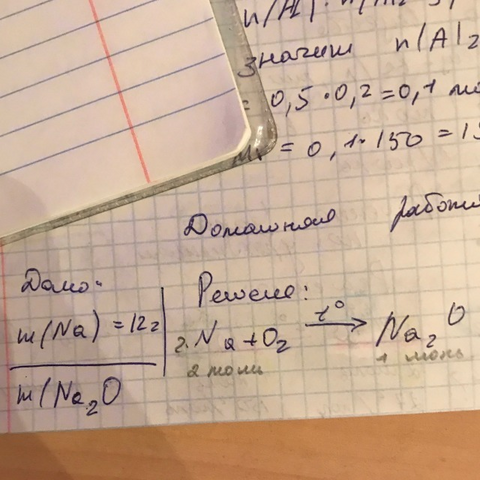 значит n(Al2
= 0,5 · 0,2 = 0,1 мо
= 0,1 · 150 = 15
Домашная работа
Дано:
m(Na) = 12г
m(Na2O
Решение:
2Na + O2 t° → Na2O
2 моль 1 моль